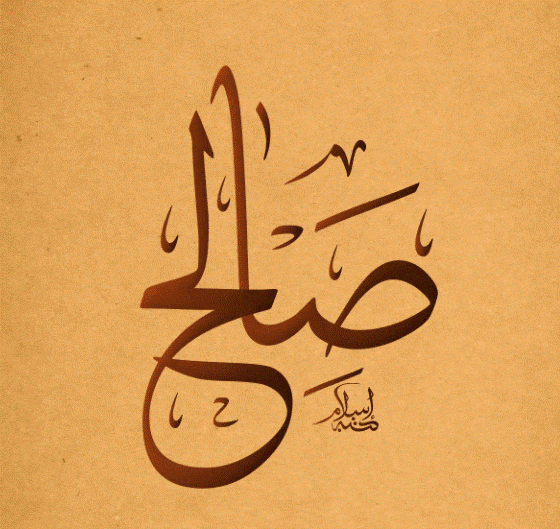 صالح
كتبه إسلام